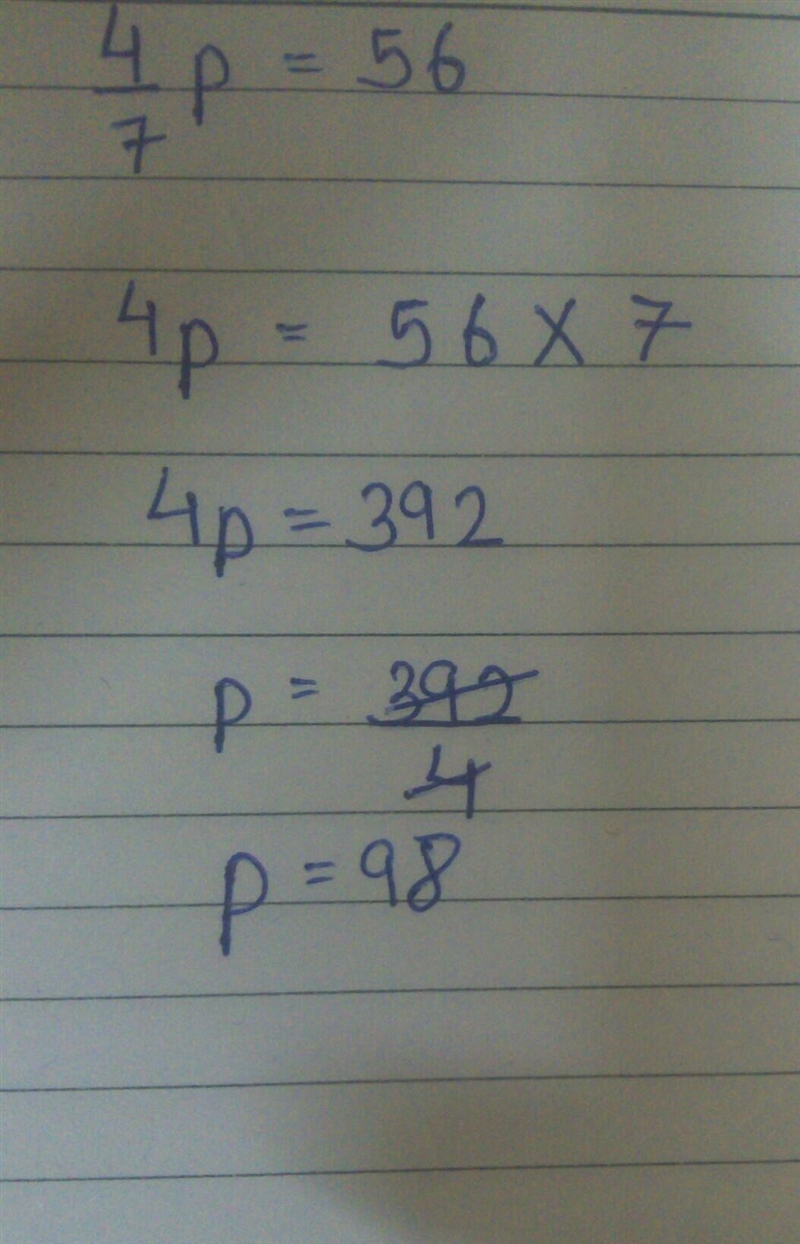 4/7 p = 56
4p = 56 x 7
4p = 392
p = 392/4
p = 98